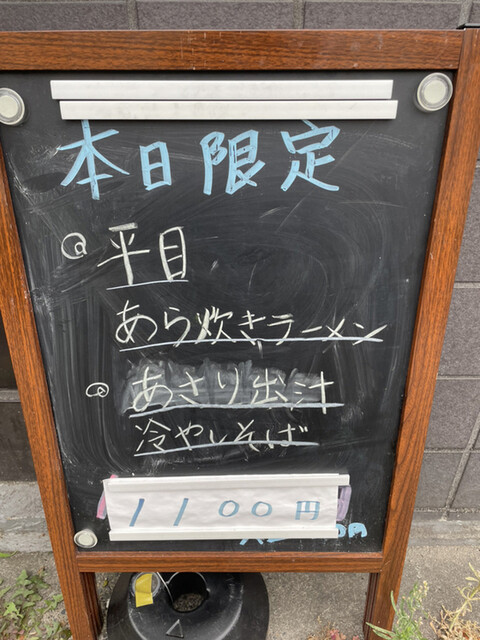 本日限定
平目
あら炊きラーメン
あさり出汁
冷やしそば
1100円